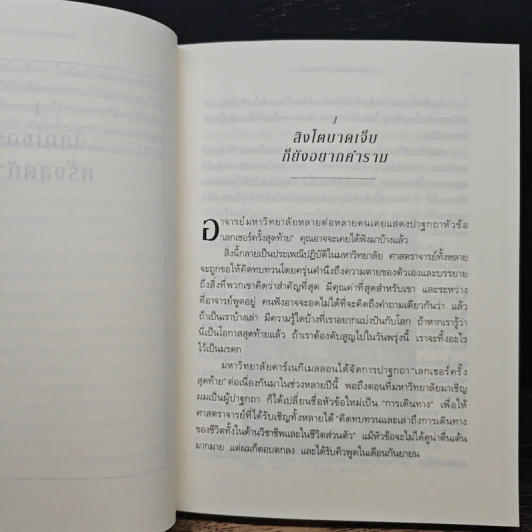 1
สิงโตบาดเจ็บ
ก็ยังอยากคำราม
อาจารย์มหาวิทยาลัยหลายต่อหลายคนเคยแสดงปาฐกถาหัวข้อ
"เลกเชอร์ครั้งสุดท้าย" คุณอาจจะเคยได้ฟังมาบ้างแล้ว
สิ่งนี้กลายเป็นประเพณีปฏิบัติในมหาวิทยาลัย ศาสตราจารย์ทั้งหลาย
จะถูกขอให้คิดทบทวนโดยคร่ำคำนึงถึงความตายของตัวเองและบรรยาย
ถึงสิ่งที่พวกเขาคิดว่าสำคัญที่สุด มีคุณค่าที่สุดสำหรับเขา และระหว่าง
ที่อาจารย์พูดอยู่ คนฟังอาจจะอดไม่ได้ที่จะคิดถึงคำถามเดียวกันว่า แล้ว
ถ้าเป็นเราบ้างเล่า มีความรู้ใดบ้างที่เราอยากแบ่งปันกับโลก ถ้าหากเรารู้ว่า
นี่เป็นโอกาสสุดท้ายแล้ว ถ้าเราต้องดับสูญไปในวันพรุ่งนี้ เราจะทิ้งอะไร
ไว้เป็นมรดก
มหาวิทยาลัยคาร์เนกีเมลลอนได้จัดการปาฐกถา "เลกเชอร์ครั้ง
สุดท้าย" ต่อเนื่องกันมาในช่วงหลายปีนี้ พอถึงตอนที่มหาวิทยาลัยมาเชิญ
ผมเป็นผู้ปาฐกถา ก็ได้เปลี่ยนชื่อหัวข้อใหม่เป็น "การเดินทาง" เพื่อให้
ศาสตราจารย์ที่ได้รับเชิญทั้งหลายได้ "คิดทบทวนและเล่าถึงการเดินทาง
ของชีวิตทั้งในด้านวิชาชีพและในชีวิตส่วนตัว" แม้หัวข้อจะไม่ได้ดูน่าตื่นเต้น
มากมาย แต่ผมก็ตอบตกลง และได้รับคิวพูดในเดือนกันยายน